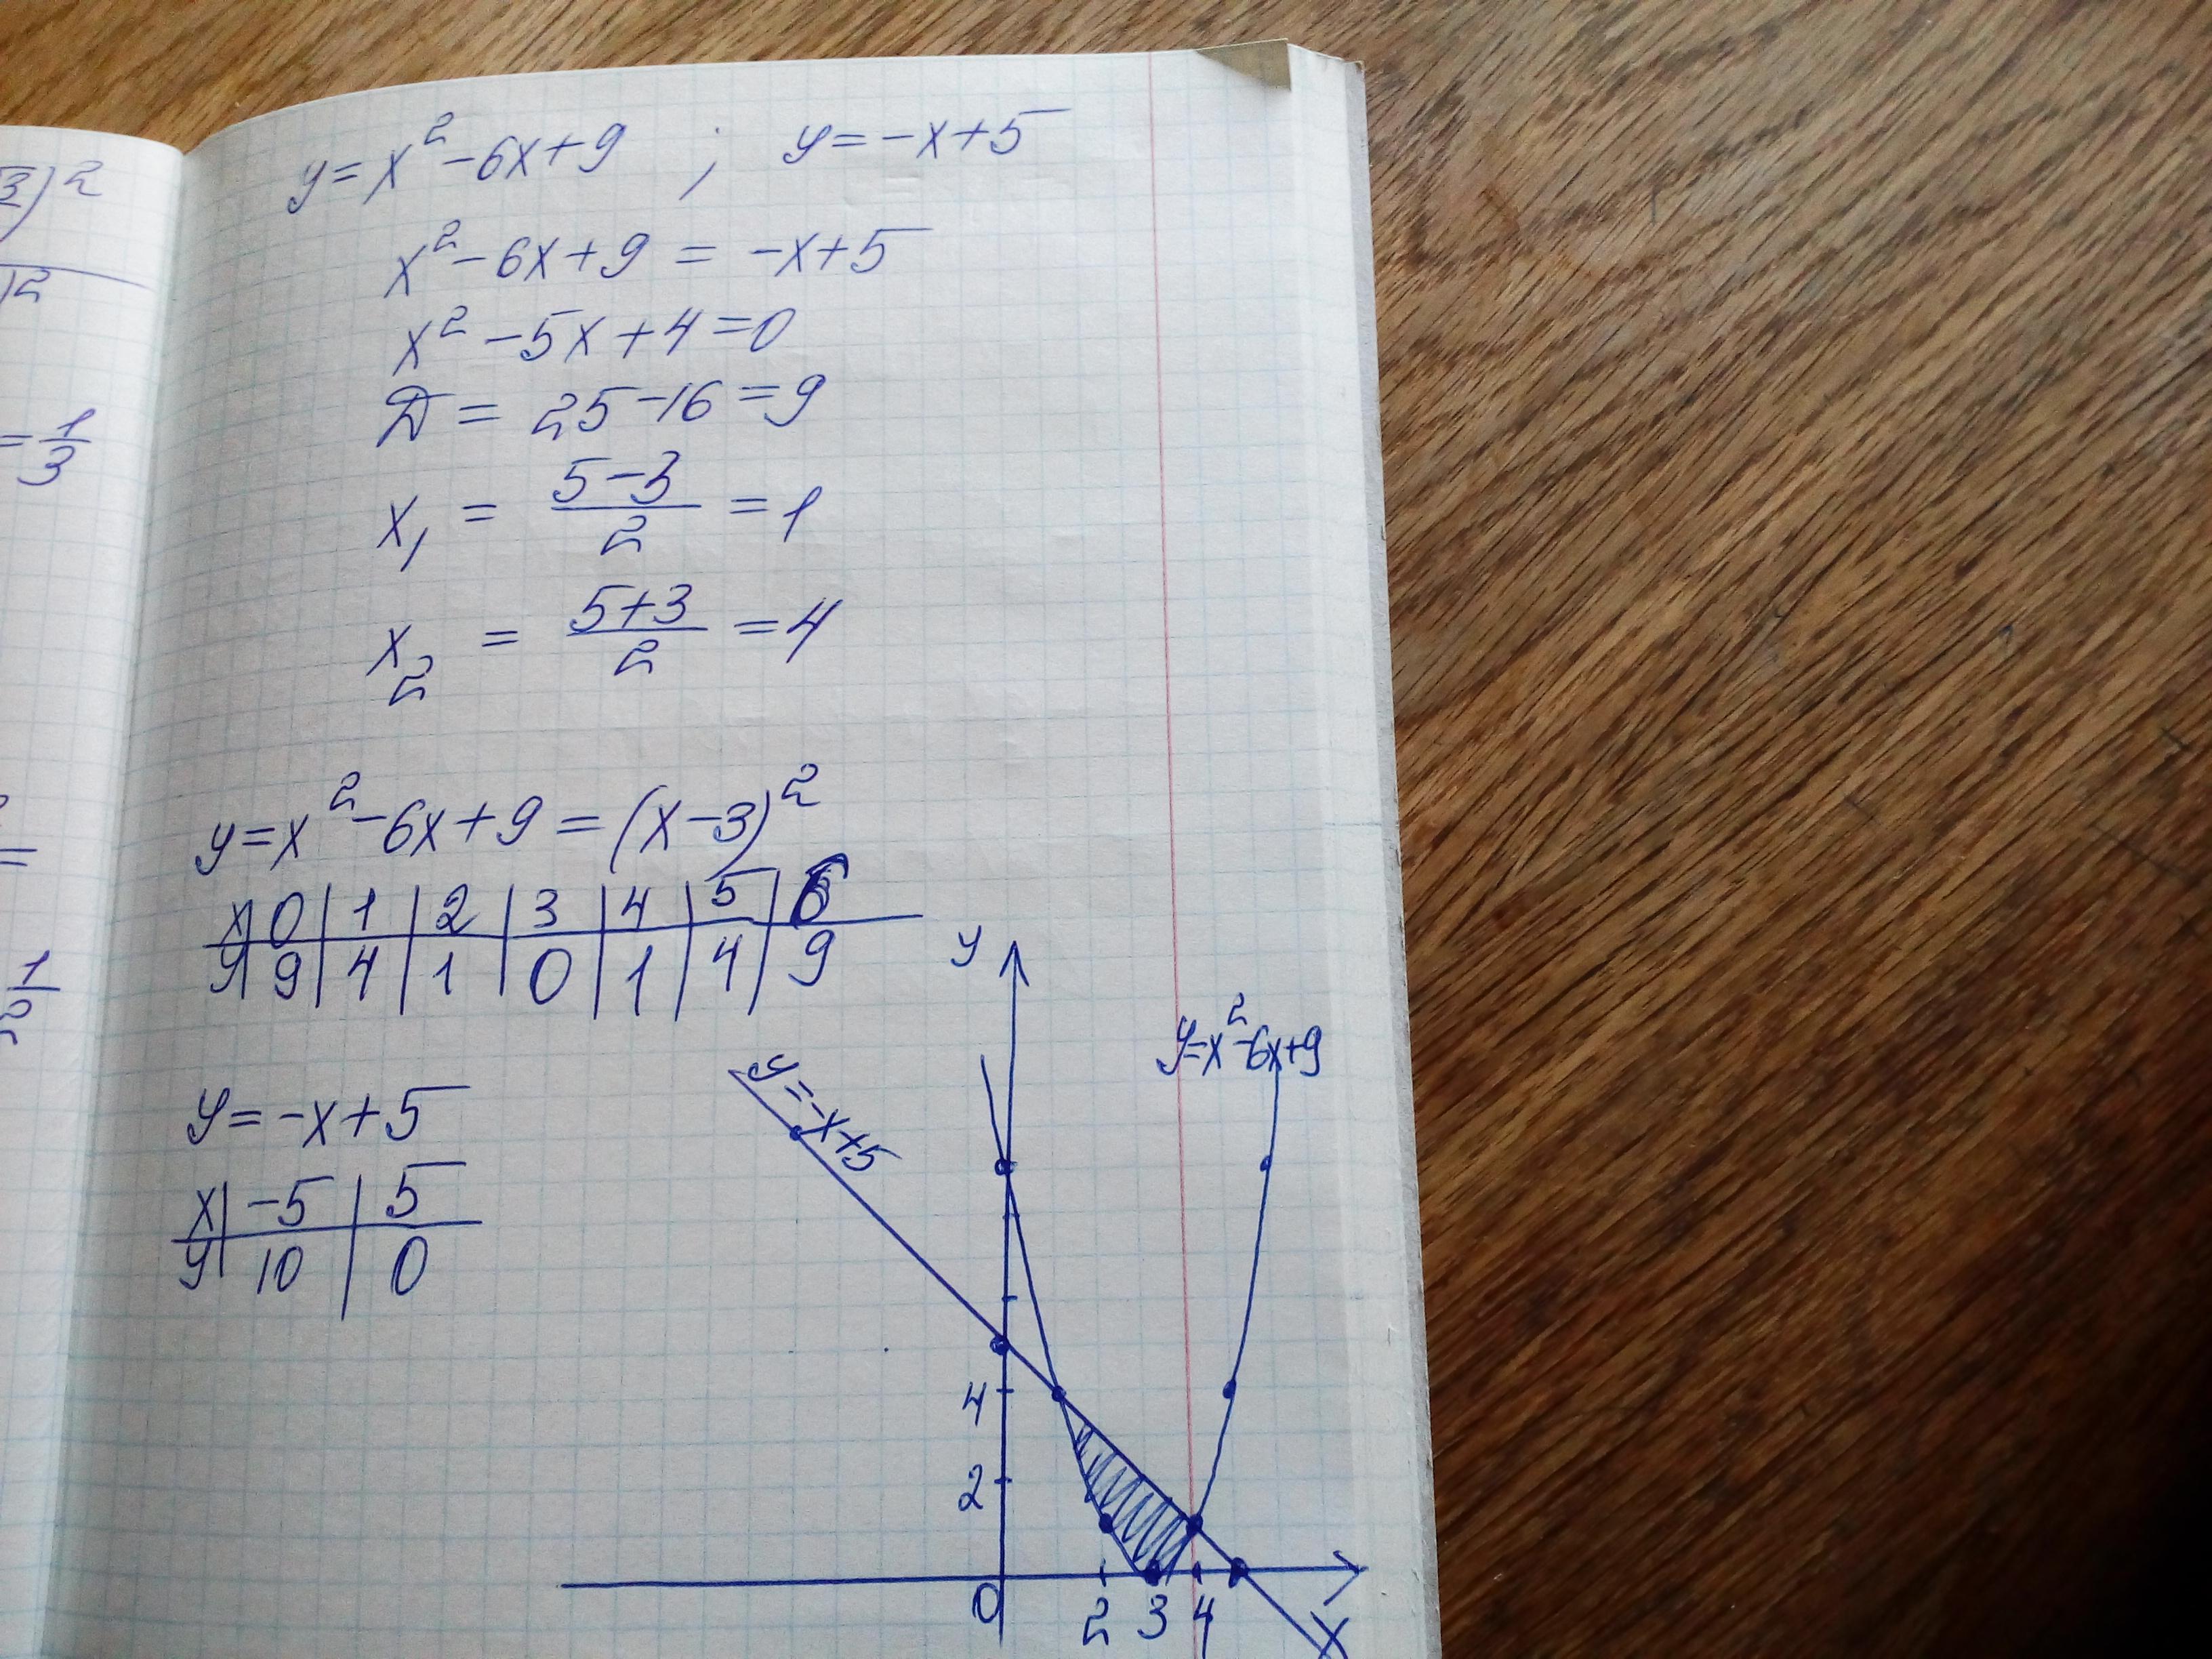 3)²
)²
= 1/3
=
1/2
y = x² - 6x + 9 ; y = -x + 5
x² - 6x + 9 = -x + 5
x² - 5x + 4 = 0
D = 25 - 16 = 9
x₁ = (5 - 3)/2 = 1
x₂ = (5 + 3)/2 = 4
y = x² - 6x + 9 = (x - 3)²
x | 0 | 1 | 2 | 3 | 4 | 5 | 6
y | 9 | 4 | 1 | 0 | 1 | 4 | 9
y = -x + 5
x | -5 | 5
y | 10 | 0
y
y = x² - 6x + 9
y = -x + 5
4
2
0 2 3 4 x